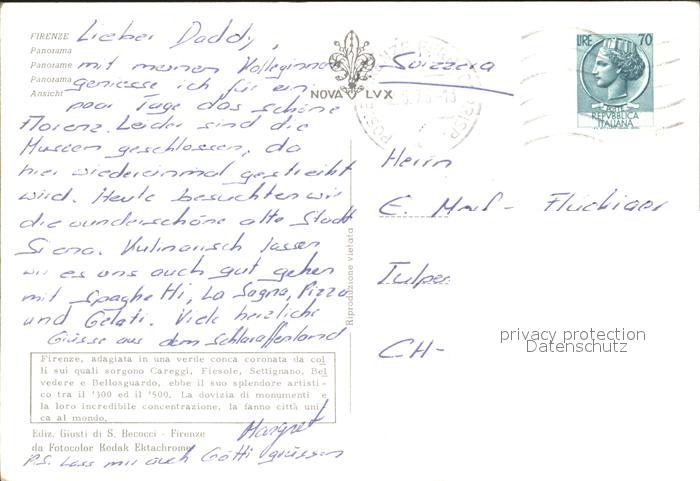 FIRENZE
Panorama
Panorame
Panorama
Ansicht
Lieber Daddy,
mit meinen Kolleginnen
geniesse ich für ein
paar Tage das schöne
Florenz. Leider sind die
Museen geschlossen, da
hier wiedereinmal gestreikt
wird. Heute besuchten wir
die wunderschöne alte Stadt
Siena. Kulinarisch lassen
wir es uns auch gut gehen
mit Spaghetti, La Sagna, Pizza
und Gelati. Viele herzliche
Grüsse aus dem Schlaraffenland
Margret
P.S. Lass mir auch Götti grüssen
Firenze, adagiata in una verde conca coronata da col
li sui quali sorgono Careggi, Fiesole, Settignano, Bel
vedere e Bellosguardo, ebbe il suo splendore artisti-
co tra il '300 ed il '500. La dovizia di monumenti e
la loro incredibile concentrazione, la fanno città uni
ca al mondo.
Ediz. Giusti di S. Becocci - Firenze
da Fotocolor Kodak Ektachrome
NOVA LVX
Riproduzione vietata
LIRE 70
POSTE
REPVBBLICA
ITALIANA
Svizzera
Herrn
E. - Flückiger
CH-
privacy protection
Datenschutz